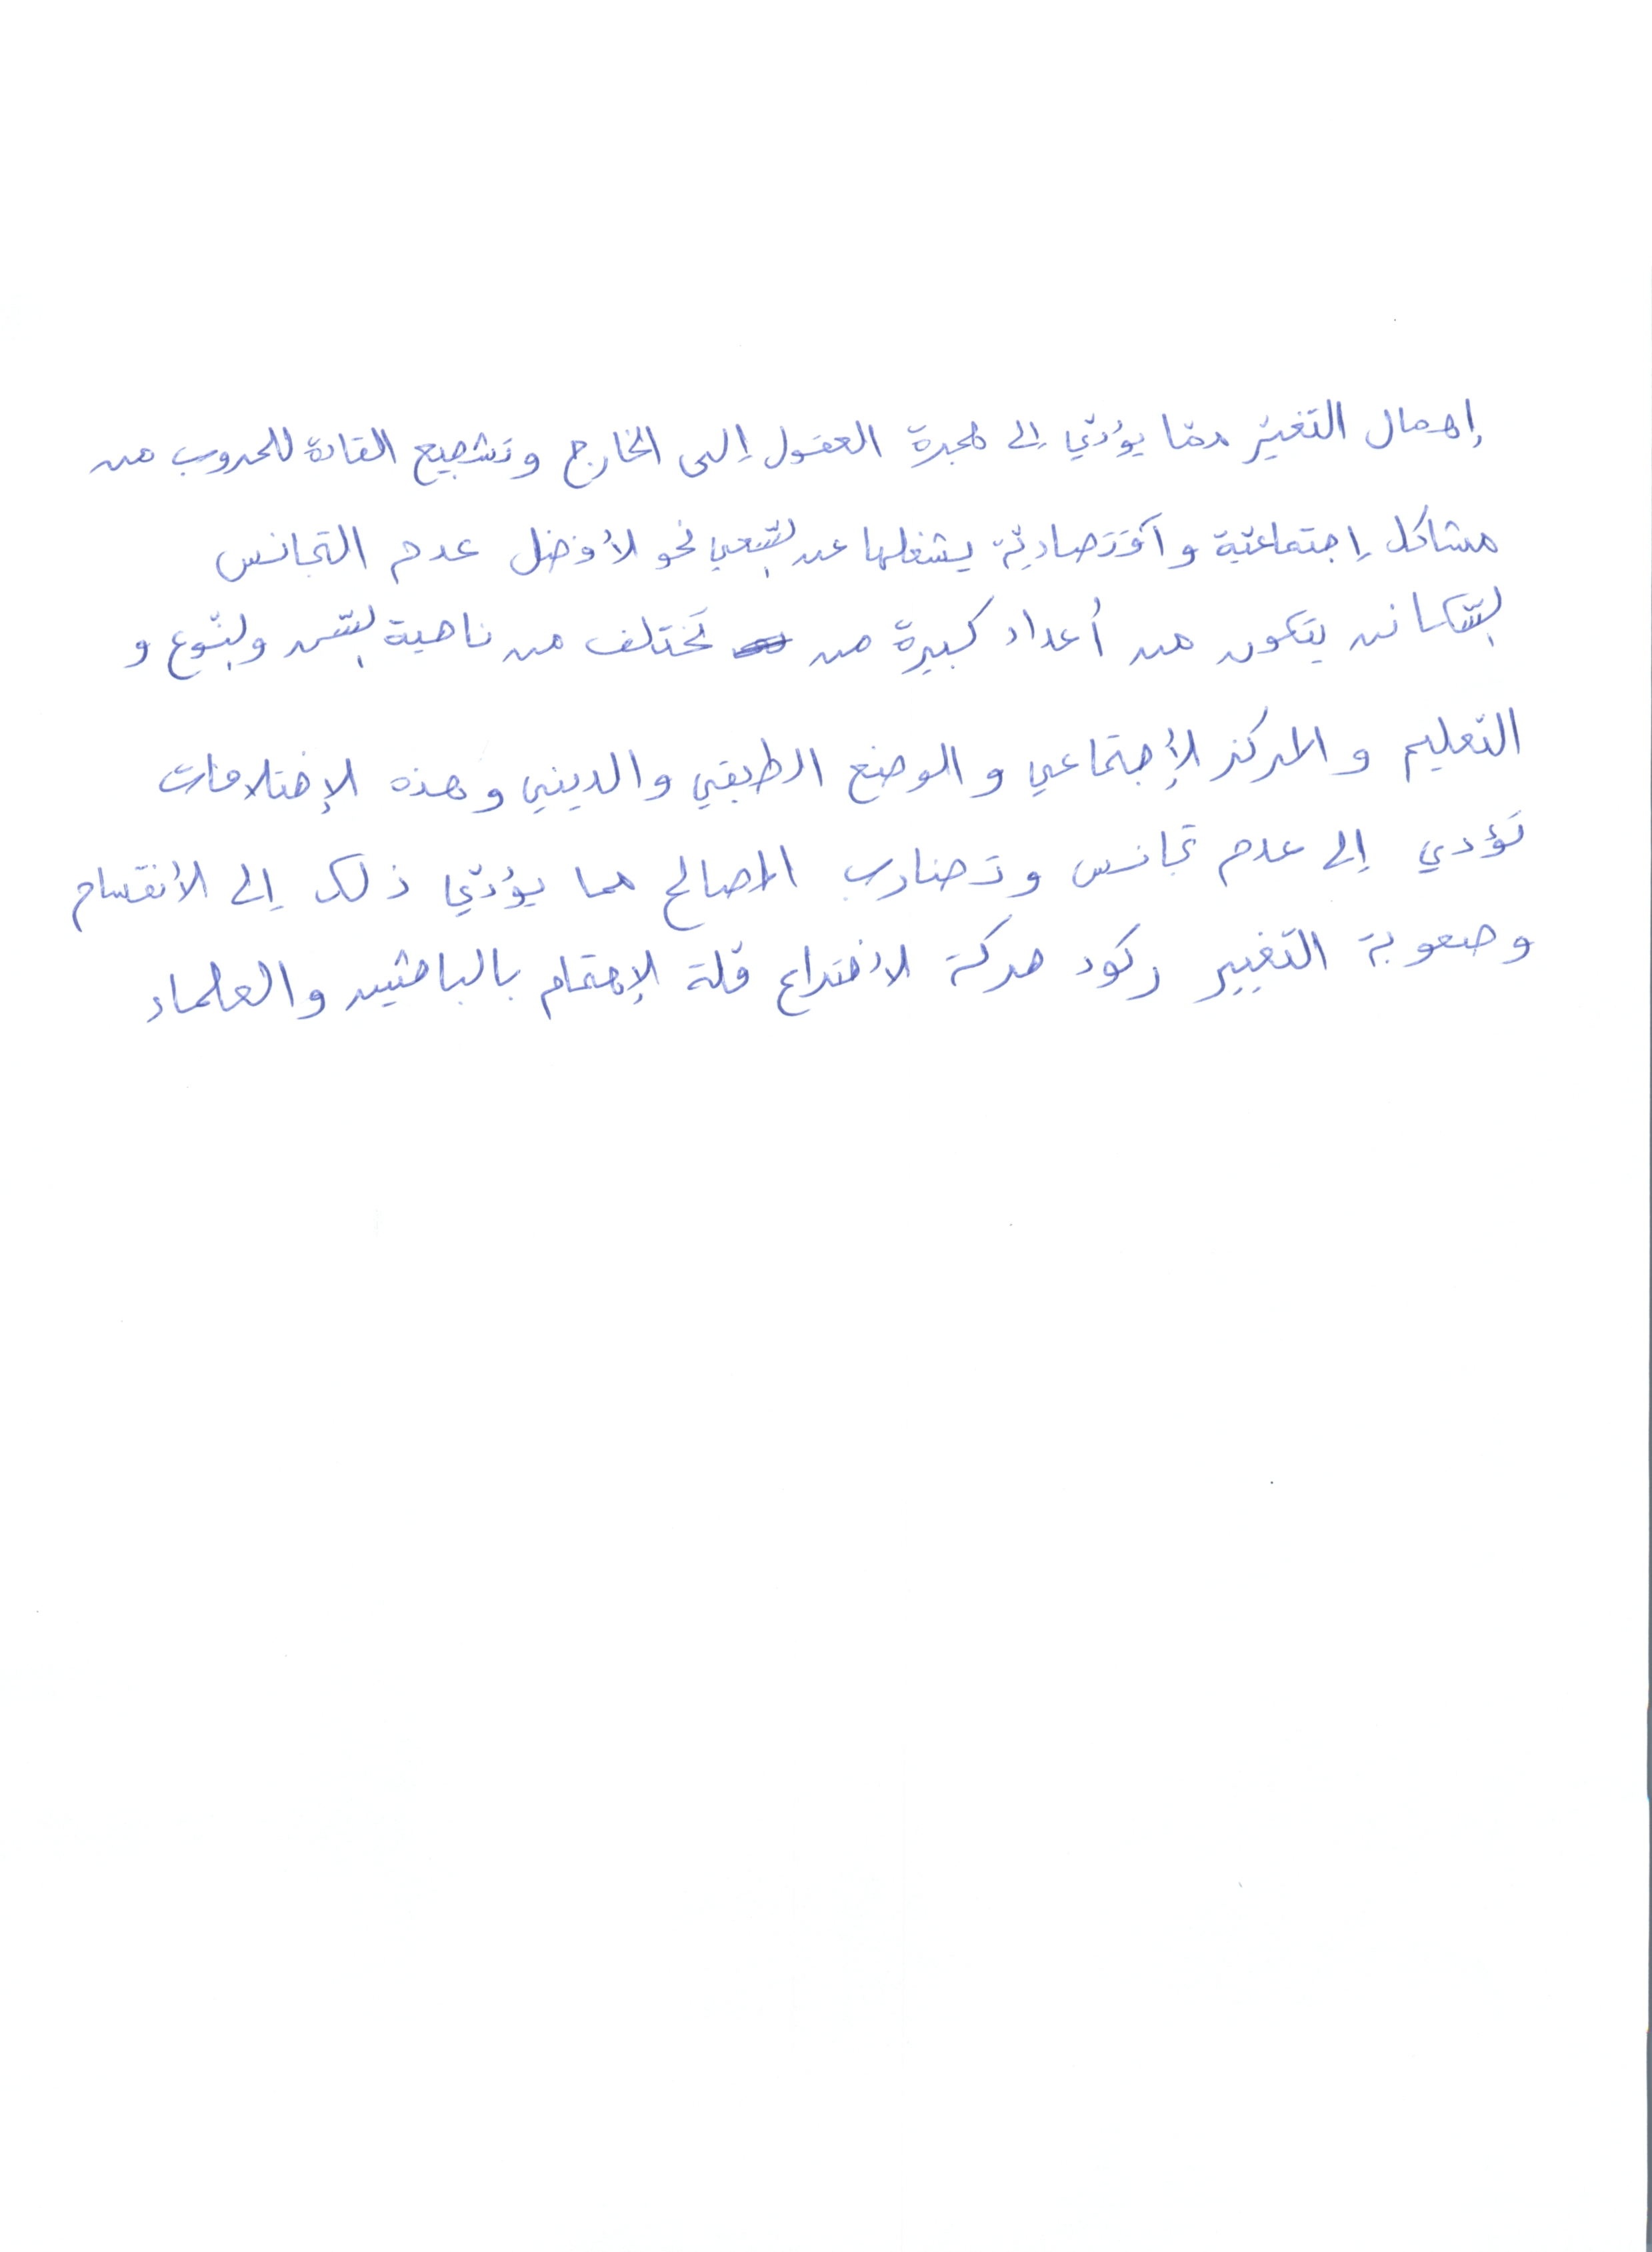 إهمال التغيّر ممّا يؤدّي إلى هجرة العقول إلى الخارج وتشجيع القادة للحروب من
مشاكل إجتماعيّة وآقتصاديّة يشغلها عن السّعي نحو الأفضل عدم التجانس
السّكان يتكون من أعداد كبيرة من تختلف من ناحية السّن والنّوع و
التعليم والمركز الأجتماعي والوضع الطبقي والديني وهذه الإختلافات
تؤدي إلى عدم تجانس وتضارب المصالح مما يؤدّي ذلك إلى الأنقسام
وصعوبة التغيير ركود حركة الأختراع قلة الإهتمام بالباحثين والعلماء